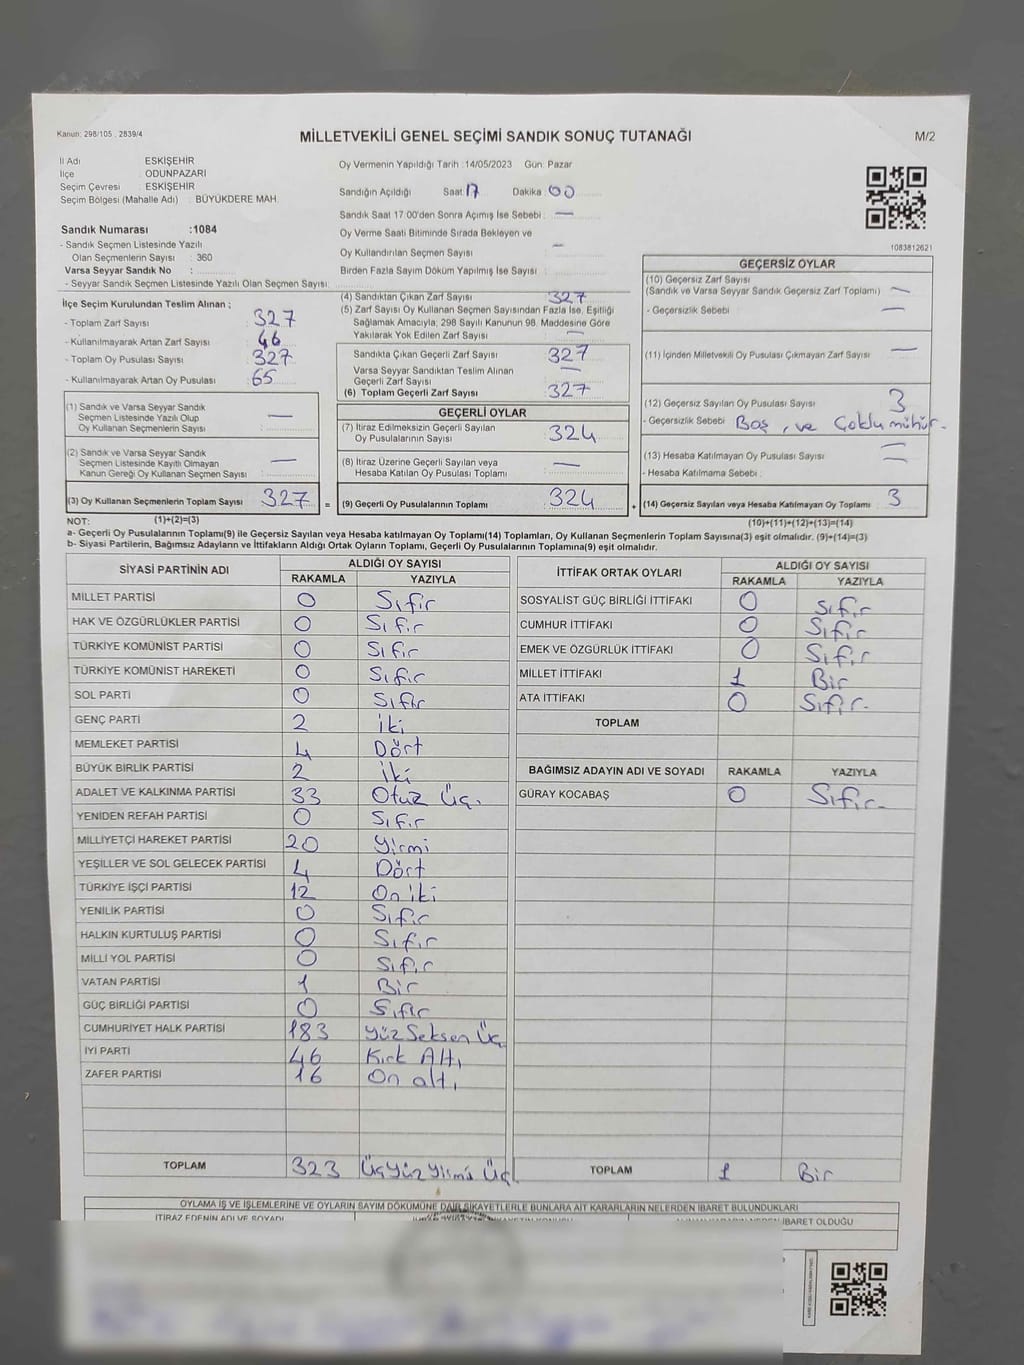 Kanun: 298/105 , 2839/4
MİLLETVEKİLİ GENEL SEÇİMİ SANDIK SONUÇ TUTANAĞI
M/2
İl Adı ESKİŞEHİR
İlçe ODUNPAZARI
Seçim Çevresi : ESKİŞEHİR
Seçim Bölgesi (Mahalle Adı) : BÜYÜKDERE MAH.
Oy Vermenin Yapıldığı Tarih :14/05/2023 Gün: Pazar
Sandığın Açıldığı Saat: 17 Dakika: 00
Sandık Saat 17.00'den Sonra Açımış İse Sebebi : —
Oy Verme Saati Bitiminde Sırada Bekleyen ve
Oy Kullandırılan Seçmen Sayısı : —
Birden Fazla Sayım Döküm Yapılmış İse Sayısı :
1083812621
Sandık Numarası :1084
- Sandık Seçmen Listesinde Yazılı
Olan Seçmenlerin Sayısı : 360
Varsa Seyyar Sandık No :
- Seyyar Sandık Seçmen Listesinde Yazılı Olan Seçmen Sayısı:
İlçe Seçim Kurulundan Teslim Alınan ;
- Toplam Zarf Sayısı : 327
- Kullanılmayarak Artan Zarf Sayısı : 46
- Toplam Oy Pusulası Sayısı : 327
- Kullanılmayarak Artan Oy Pusulası : 65
(1) Sandık ve Varsa Seyyar Sandık
Seçmen Listesinde Yazılı Olup
Oy Kullanan Seçmenlerin Sayısı : —
(2) Sandık ve Varsa Seyyar Sandık
Seçmen Listesinde Kayıtlı Olmayan
Kanun Gereği Oy Kullanan Seçmen Sayısı : —
(3) Oy Kullanan Seçmenlerin Toplam Sayısı : 327
(4) Sandıktan Çıkan Zarf Sayısı : 327
(5) Zarf Sayısı Oy Kullanan Seçmen Sayısından Fazla İse, Eşitliği
Sağlamak Amacıyla, 298 Sayılı Kanunun 98. Maddesine Göre
Yakılarak Yok Edilen Zarf Sayısı : —
Sandıkta Çıkan Geçerli Zarf Sayısı : 327
Varsa Seyyar Sandıktan Teslim Alınan
Geçerli Zarf Sayısı : —
(6) Toplam Geçerli Zarf Sayısı : 327
GEÇERLİ OYLAR
(7) İtiraz Edilmeksizin Geçerli Sayılan
Oy Pusulalarının Sayısı : 324
(8) İtiraz Üzerine Geçerli Sayılan veya
Hesaba Katılan Oy Pusulaları Toplamı : —
= (9) Geçerli Oy Pusulalarının Toplamı : 324
GEÇERSİZ OYLAR
(10) Geçersiz Zarf Sayısı
(Sandık ve Varsa Seyyar Sandık Geçersiz Zarf Toplamı) : —
- Geçersizlik Sebebi : —
(11) İçinden Milletvekili Oy Pusulası Çıkmayan Zarf Sayısı : —
(12) Geçersiz Sayılan Oy Pusulası Sayısı : 3
- Geçersizlik Sebebi : Boş, ve Çoklu mühür.
(13) Hesaba Katılmayan Oy Pusulası Sayısı : —
- Hesaba Katılmama Sebebi : —
+ (14) Geçersiz Sayılan veya Hesaba Katılmayan Oy Toplamı : 3
NOT: (1)+(2)=(3) (10)+(11)+(12)+(13)=(14)
a- Geçerli Oy Pusulalarının Toplamı(9) ile Geçersiz Sayılan veya Hesaba katılmayan Oy Toplamı(14) Toplamları, Oy Kullanan Seçmenlerin Toplam Sayısına(3) eşit olmalıdır. (9)+(14)=(3)
b- Siyasi Partilerin, Bağımsız Adayların ve İttifakların Aldığı Ortak Oyların Toplamı, Geçerli Oy Pusulalarının Toplamına(9) eşit olmalıdır.
SİYASİ PARTİNİN ADI ALDIĞI OY SAYISI
RAKAMLA YAZIYLA
MİLLET PARTİSİ 0 Sıfır
HAK VE ÖZGÜRLÜKLER PARTİSİ 0 Sıfır
TÜRKİYE KOMÜNİST PARTİSİ 0 Sıfır
TÜRKİYE KOMÜNİST HAREKETİ 0 Sıfır
SOL PARTİ 0 Sıfır
GENÇ PARTİ 2 iki
MEMLEKET PARTİSİ 4 Dört
BÜYÜK BİRLİK PARTİSİ 2 iki
ADALET VE KALKINMA PARTİSİ 33 Otuz Üç.
YENİDEN REFAH PARTİSİ 0 Sıfır
MİLLİYETÇİ HAREKET PARTİSİ 20 Yirmi
YEŞİLLER VE SOL GELECEK PARTİSİ 4 Dört
TÜRKİYE İŞÇİ PARTİSİ 12 On iki
YENİLİK PARTİSİ 0 Sıfır
HALKIN KURTULUŞ PARTİSİ 0 Sıfır
MİLLİ YOL PARTİSİ 0 Sıfır
VATAN PARTİSİ 1 Bir
GÜÇ BİRLİĞİ PARTİSİ 0 Sıfır
CUMHURİYET HALK PARTİSİ 183 Yüz Seksen Üç
İYİ PARTİ 46 Kırk Altı
ZAFER PARTİSİ 16 On altı
TOPLAM 323 ÜçYüzYirmi Üç
İTTİFAK ORTAK OYLARI ALDIĞI OY SAYISI
RAKAMLA YAZIYLA
SOSYALİST GÜÇ BİRLİĞİ İTTİFAKI 0 Sıfır
CUMHUR İTTİFAKI 0 Sıfır
EMEK VE ÖZGÜRLÜK İTTİFAKI 0 Sıfır
MİLLET İTTİFAKI 1 Bir
ATA İTTİFAKI 0 Sıfır.
TOPLAM
BAĞIMSIZ ADAYIN ADI VE SOYADI RAKAMLA YAZIYLA
GÜRAY KOCABAŞ 0 Sıfır.
TOPLAM 1 Bir
OYLAMA İŞ VE İŞLEMLERİNE VE OYLARIN SAYIM DÖKÜMÜNE DAİR ŞİKAYETLERLE BUNLARA AİT KARARLARIN NELERDEN İBARET BULUNDUKLARI
İTİRAZ EDENİN ADI VE SOYADI
İBARET OLDUĞU